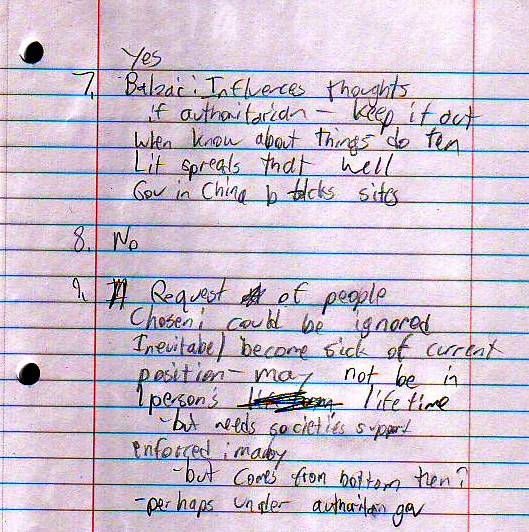 Yes
7. Balzac: Influences thoughts
if authoritarian - keep it out
When know about things do tem
Lit spreads that well
Gov in China blocks sites
8. No
9. Request of people
Chosen; could be ignored
Inevitabel become sick of current
position - may not be in
1 person's lifetime
-but needs societies support
enforced:
-but comes from bottom then?
-perhaps under authoritian gov